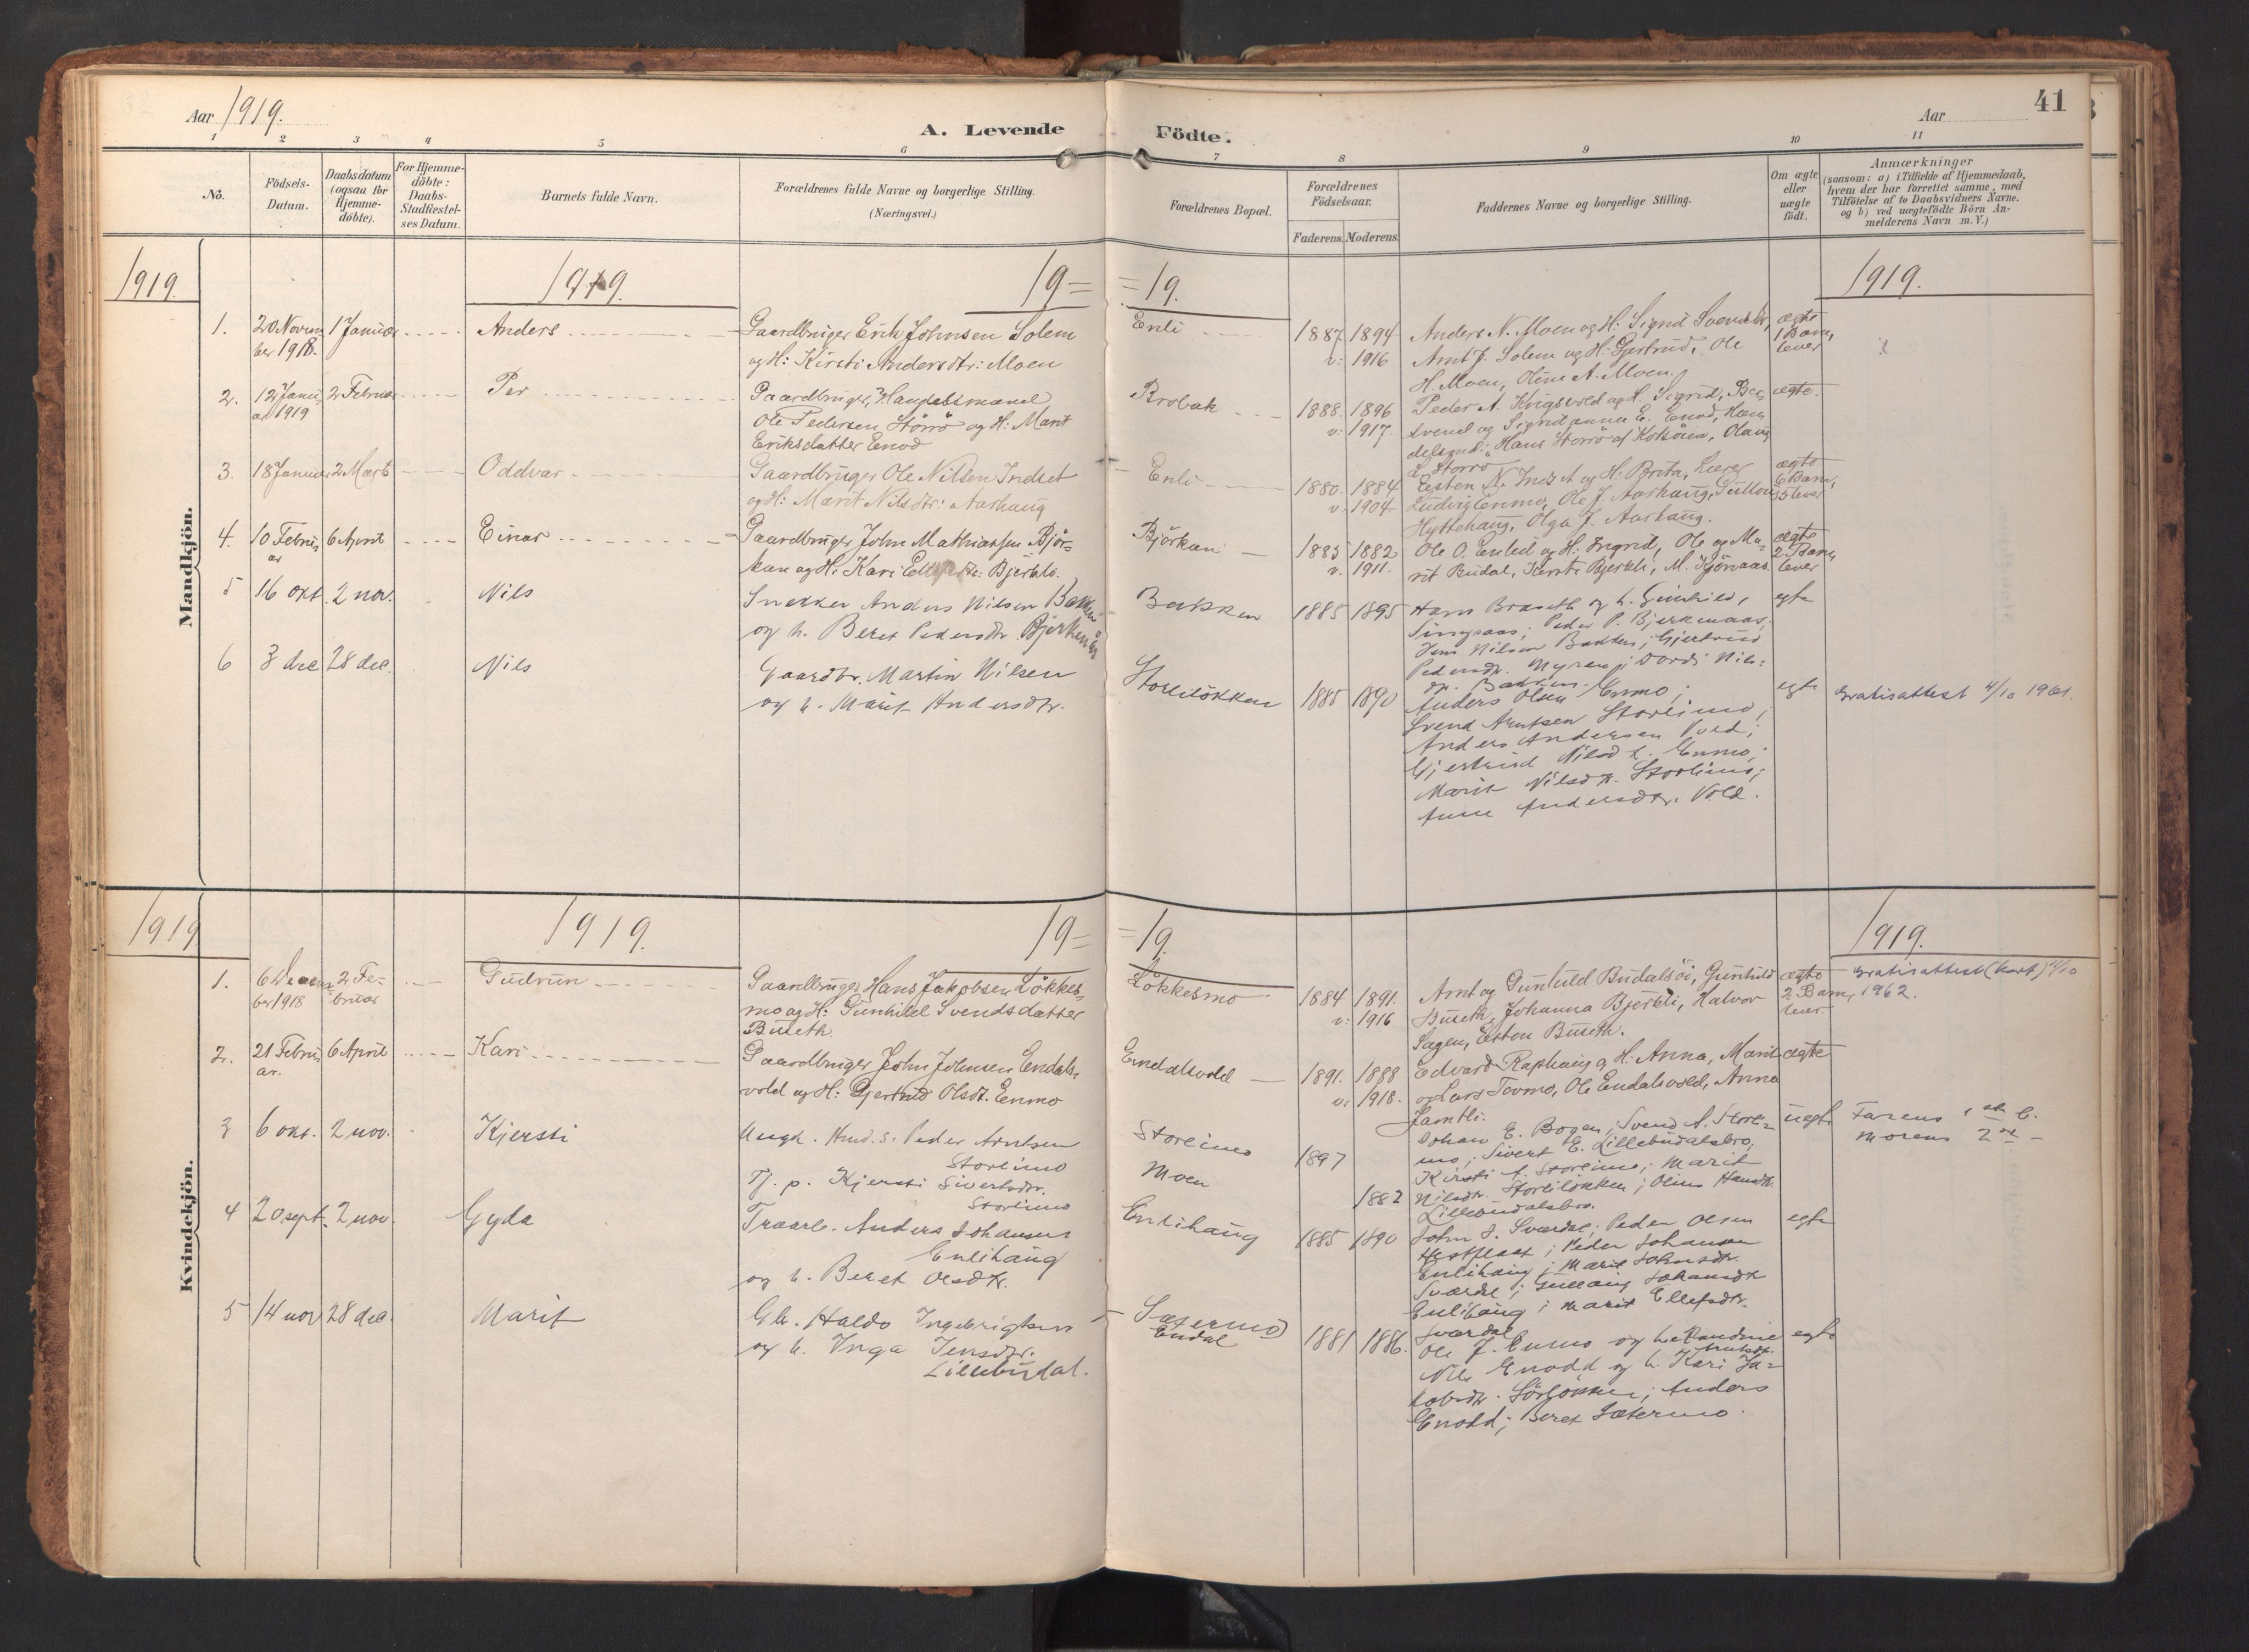 Aar 1919.
A. Levende Födte.
Aar
41
1 2 3 4 5 6 7 8 9 10 11
No.
Födsels-
Datum.
Daabsdatum
(ogsaa for
Hjemme-
döbte).
For Hjemme-
döbte:
Daabs-
Stadfæstel-
ses Datum.
Barnets fulde Navn.
Forældrenes fulde Navne og borgerlige Stilling.
(Næringsvei.)
Forældrenes Bopæl.
Forældrenes
Födselsaar.
Faderens. Moderens.
Faddernes Navne og borgerlige Stilling.
Om ægte
eller
uægte
födt.
Anmærkninger
(saasom: a) i Tilfælde af Hjemmedaab,
hvem der har forrettet samme, med
Tilföielse af to Daabsvidners Navne.
og b) ved uægtefödte Börn An-
melderens Navn m.V.)
Mandkjön.
1919. 1919. 19= =19. 1919.
1. 20 Novem
ber 1918. 1 Januar Anders
Gaardbruger Erik Johnsen Solem
og H: Kirsti Andersdtr: Moen
Enli
1887. 1894
v: 1916
Anders N. Moen og H: Sigrid
Arnt J. Solem og H: Gjertrud, Ole
H. Moen, Oline A. Moen.
ægte
1 Barn,
lever
2. 12 Janu
ar 1919 2 Februar Per
Gaardbruger, Handelsmand
Ole Pedersen Störrö og H: Marit
Eriksdatter Enod
Brobak
1888. 1896
v: 1917.
Peder A. Kvigsvold og H. Sigrid,
Svend og Sigrid anna E. Enod,
Hans Störrö af Kotsöien,
Störrö
ægte.
3. 18 Januar 2 Marts Oddvar
Gaardbruger Ole Nilsen Indset
og H: Marit Nilsdtr: Aarhaug
Enli
1880. 1884
v. 1904
Eesten N. Indset og H: Brita, Lærer
Ludvig Enmo, Ole J. Aarhaug,
Hyttehaug, Olga J. Aarhaug.
ægte
6 Barn,
5 lever
4. 10 Febru
ar 6 April Einar
Gaardbruger John Mathiassen Björ-
kan og H: Kari Bjerkli.
Björkan
1885 1882
v. 1911.
Ole O. Enlid og H: Ingrid, Ole og Ma-
rit Budal, Kirsti Bjerkli, M. Kjörvaas
ægte
2 Barn
lever
5 16 okt. 2 nov. Nils
Snekker Anders Nilsen Bakken
og h. Beret Pedersdtr. Bjerkenås
Bakken
1885 1895
Hans Braseth og h. Gunhild,
Singsaas; Peder P. Bjerkenaas;
Jens Nilsen Bakken; Gjertrud
Pedersdtr. Myren; Dordi Nils:
dtr. Bakken.
egte
6 3 dec 28 dec. Nils
Gaardbr. Martin Nilsen
og h. Marit Andersdtr.
Storlilökken
1885 1890
Anders Olsen Enmo;
Svend Arntsen Storlimo;
Anders Andersen Vold;
Gjertrud Nilsdtr. Enmo;
Marit Nilsdtr. Storlimo;
Anne Andersdtr. Vold.
egte Gratisattest 4/10 1961.
Kvindekjön.
1919 1919. 19= =19. 1919.
1. 6 Decem
ber 1918 2 Fe-
bruar Gudrun
Gaardbruger Hans Jakobsen Lökkes-
mo og H: Gunhild Svendsdatter
Buseth.
Lökkesmo
1884 1891.
v: 1916
Arnt og Gunhild Budalsöi, Gunhild
Buseth, Johanna Bjerkli, Halvor
Sagen, Esten Buseth.
ægte
2 Barn,
lever
Gratisattest (kort) 4/10
1962.
2. 21 Febru
ar. 6 April Kari
Gaardbruger John Johnsen Endals-
vold og H: Gjertrud Olsdt. Enmo
Endalsvold
1891. 1888
v. 1918.
Edvard Raphaug og H: Anna, Marit
og Lars Tovmo, Ole Endalsvold, Anna
Jamtli.
ægte
3 6 okt. 2 nov. Kjersti
Ungk. Peder Arntsen
Storlimo
Tj. p. Kjersti Sivertsdtr.
Storlimo
Storlimo
Moen
1897
1882
Johan E. Bogen; Svend A. Storli-
mo; Sivert E. Lillebudalsbro;
Kirsti A. Storlimo; Marit
Nilsdtr. Storlilökken; Olina Hansdtr.
Lillebudalsbro.
uegte Farens 1ste b.
Morens 2det –
4 20 sept. 2 nov. Gyda
Anders Johansen
Enlihaug
og h. Beret Olsdtr.
Enlihaug
1885 1890
John J. Sværdal; Peder Olsen
Peder Johansen
Enlihaug; Marit Johnsdtr.
Sværdal; Johansdtr.
Enlihaug; Marit Ellefsdtr.
Sværdal
egte
5 14 nov 28 dec. Marit
Gbr. Haldo Ingebrigtsen
og h. Inga Jensdtr.
Lillebudal.
Sætermo
Endal
1881 1886.
Ole J. Enmo og h. Randine
Nils Enodd og h. Kari Ja-
kobsdtr. Anders
Enodd; Beret Sætermo.
egte